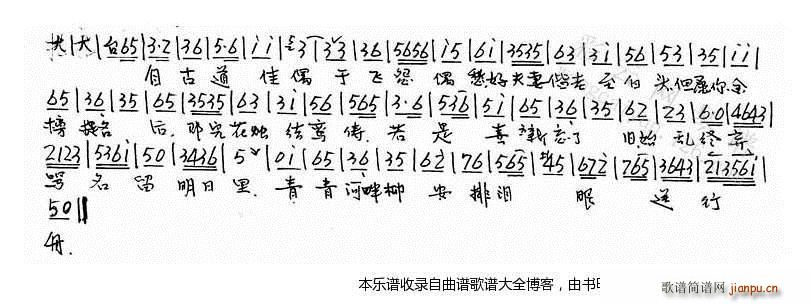 大 | 大 | 台 65 | 3·2 | 36 | 5·6 | i i | 3 3 3 | 36 | 5656 | i5 | 6i | 3535 | 63 | 3i | 56 | 53 | 35 | i i |
自古道 佳偶 于飞 偶 好夫妻偕老 至白头但愿你金
65 | 36 | 35 | 65 | 3535 | 63 | 3i | 56 | 565 | 3·6 | 536 | 5i | 65 | 36 | 35 | 62 | 23 | 6·0 | 4643 |
榜 名 后, 花烛 结鸾俦. 若 是 喜新忘了 旧 始乱终弃
2123 | 536i | 50 | 3436 | 5 | 0i | 65 | 36 | 35 | 62 | 76 | 565 | 45 | 672 | 765 | 3643 | 213561 |
骂名留 明日里. 青青河畔柳 安排泪 眼 送 行
50 ||
舟.
本乐谱收录自曲谱歌谱大全博客，由书
歌谱简谱网
jianpu.cn